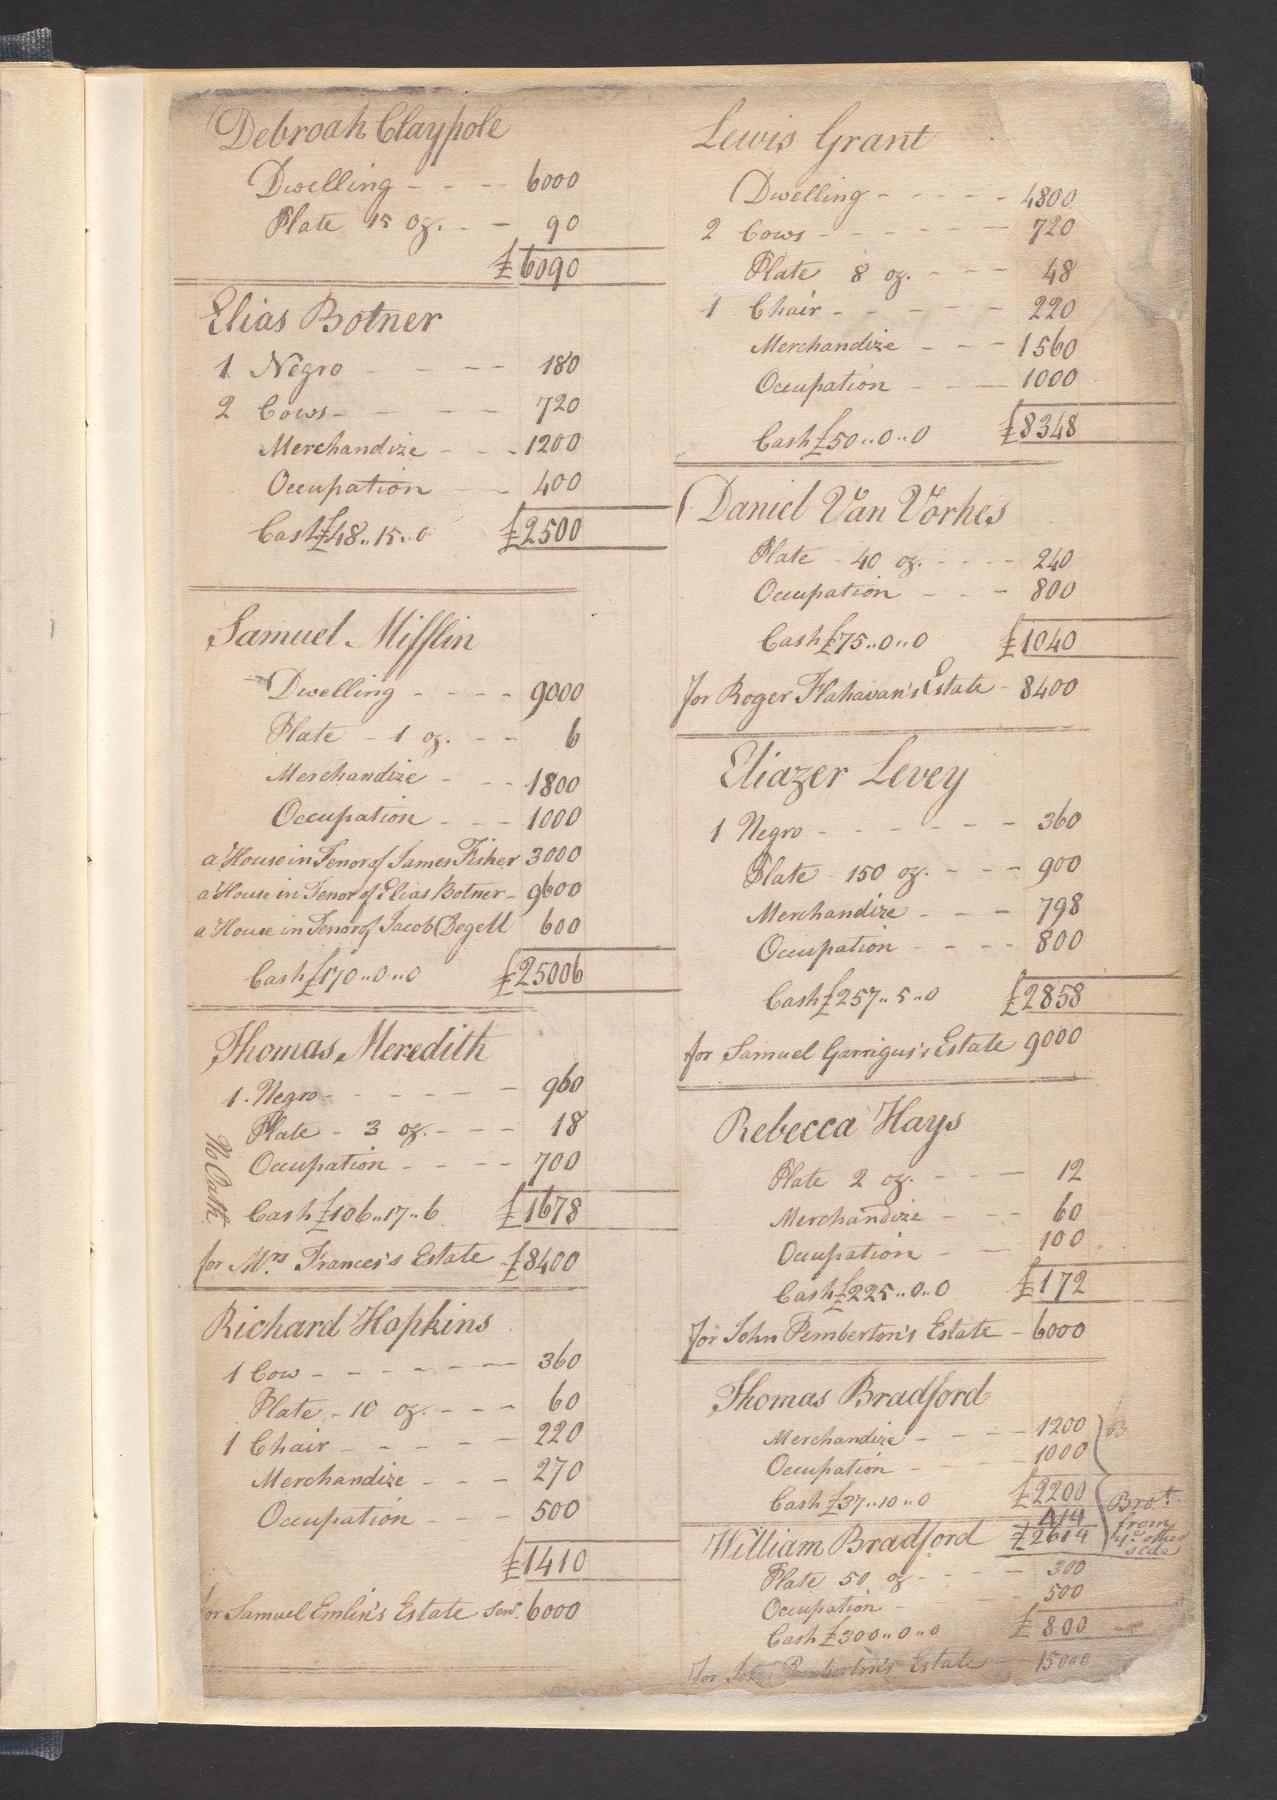 Debroah Claypole
Dwelling - - - - 6000
Plate 15 oz. - - 90
£6090
Elias Botner
1 Negro - - - - 180
2 Cows - - - - 720
Merchandize - - - 1200
Occupation - - 400
Cash £48..15..0 £2500
Samuel Mifflin
Dwelling - - - - 9000
Plate - 1 oz. - - 6
Merchandize - - - 1800
Occupation - - - 1000
a House in Tenor of James Fisher 3000
a House in Tenor of Elias Botner - 9600
a House in Tenor of Jacob Degell 600
Cash £170..0..0 £25006
Thomas Meredith
1. Negro - - - - - 960
Plate - 3 oz. - - - 18
Occupation - - - - 700
No Oath.
Cash £106..17..6 £1678
for Mrs. Frances's Estate £8400
Richard Hopkins
1 Cow - - - - - 360
Plate - 10 oz. - - - 60
1 Chair - - - - - 220
Merchandize - - - 270
Occupation - - - 500
£1410
for Samuel Emlin's Estate Senr. 6000
Lewis Grant
Dwelling - - - - - 4800
2 Cows - - - - - - 720
Plate 8 oz. - - - 48
1 Chair - - - - - 220
Merchandize - - - 1560
Occupation - - - 1000
Cash £50..0..0 £8348
Daniel Van Vorhes
Plate - 40 oz. - - - - 240
Occupation - - - 800
Cash £75..0..0 £1040
for Roger Flahavan's Estate - 8400
Eliazer Levey
1 Negro - - - - - - 360
Plate - 150 oz. - - - 900
Merchandize - - - 798
Occupation - - - - 800
Cash £257..5..0 £2858
for Samuel Garrigus's Estate 9000
Rebecca Hays
Plate 2 oz. - - - 12
Merchandize - - - 60
Occupation - - 100
Cash £225..0..0 £172
for John Pemberton's Estate - 6000
Thomas Bradford
Merchandize - - - - 1200
Occupation - - - 1000
Cash £37..10..0 £2200
414
£2614
Brot. from ye. other side
William Bradford
Plate 50 oz - - - - 300
Occupation - - - 500
Cash £300..0..0 £800
for Estate 15000